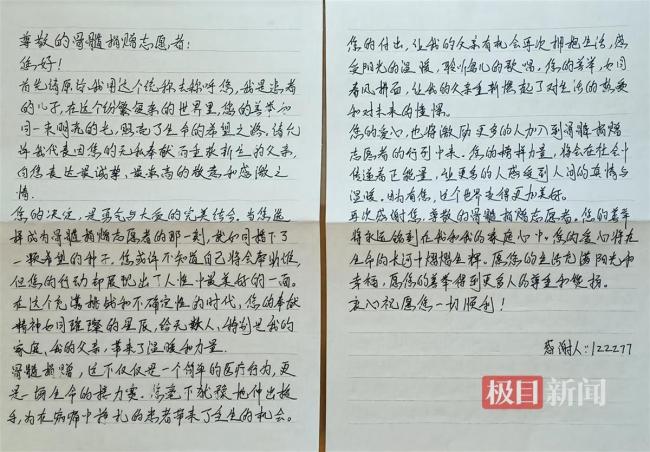 尊敬的骨髓捐赠志愿者：
您好！
首先请原谅我用这个统称去称呼您，我是患者
的儿子，在这个纷繁复杂的世界里，您的善举如
同一束明亮的光，照亮了生命的希望之路，请允
许我代表因您的无私奉献而重获新生的父亲，
向您表达最诚挚、最崇高的敬意和感激之
情。
您的决定，是勇气与大爱的完美结合。当您选
择成为骨髓捐赠志愿者的那一刻，就如同播下了
一颗希望的种子。您或许不知道自己将会帮助谁，
但您的行动却展现出了人性中最美好的一面。
在这个充满挑战和不确定性的时代，您的奉献
精神如同璀璨的星辰，给无数人，特别是我的
家庭，我的父亲，带来了温暖和力量。
骨髓捐赠，这不仅仅是一个简单的医疗行为，更
是一场生命的接力赛。您毫不犹豫地伸出援
手，为在病痛中挣扎的患者带来了重生的机会。
您的付出，让我的父亲有机会再次拥抱生活，感
受阳光的温暖，聆听鸟儿的歌唱。您的善举，如同
春风拂面，让我的父亲重新燃起了对生活的热爱
和对未来的憧憬。
您的爱心，也将激励更多的人加入到骨髓捐赠
志愿者的行列中来。您的榜样力量，将会在社会中
传递着正能量，让更多的人感受到人间的真情与
温暖。因为有您，这个世界变得更加美好。
再次感谢您，尊敬的骨髓捐赠志愿者。您的善举
将永远铭刻在我和我的家庭心中。您的爱心将在
生命的长河中熠熠生辉。愿您的生活充满阳光和
幸福，愿您的善举得到更多人的尊重和赞扬。
衷心祝愿您一切顺利！
感谢人：122277
极目新闻